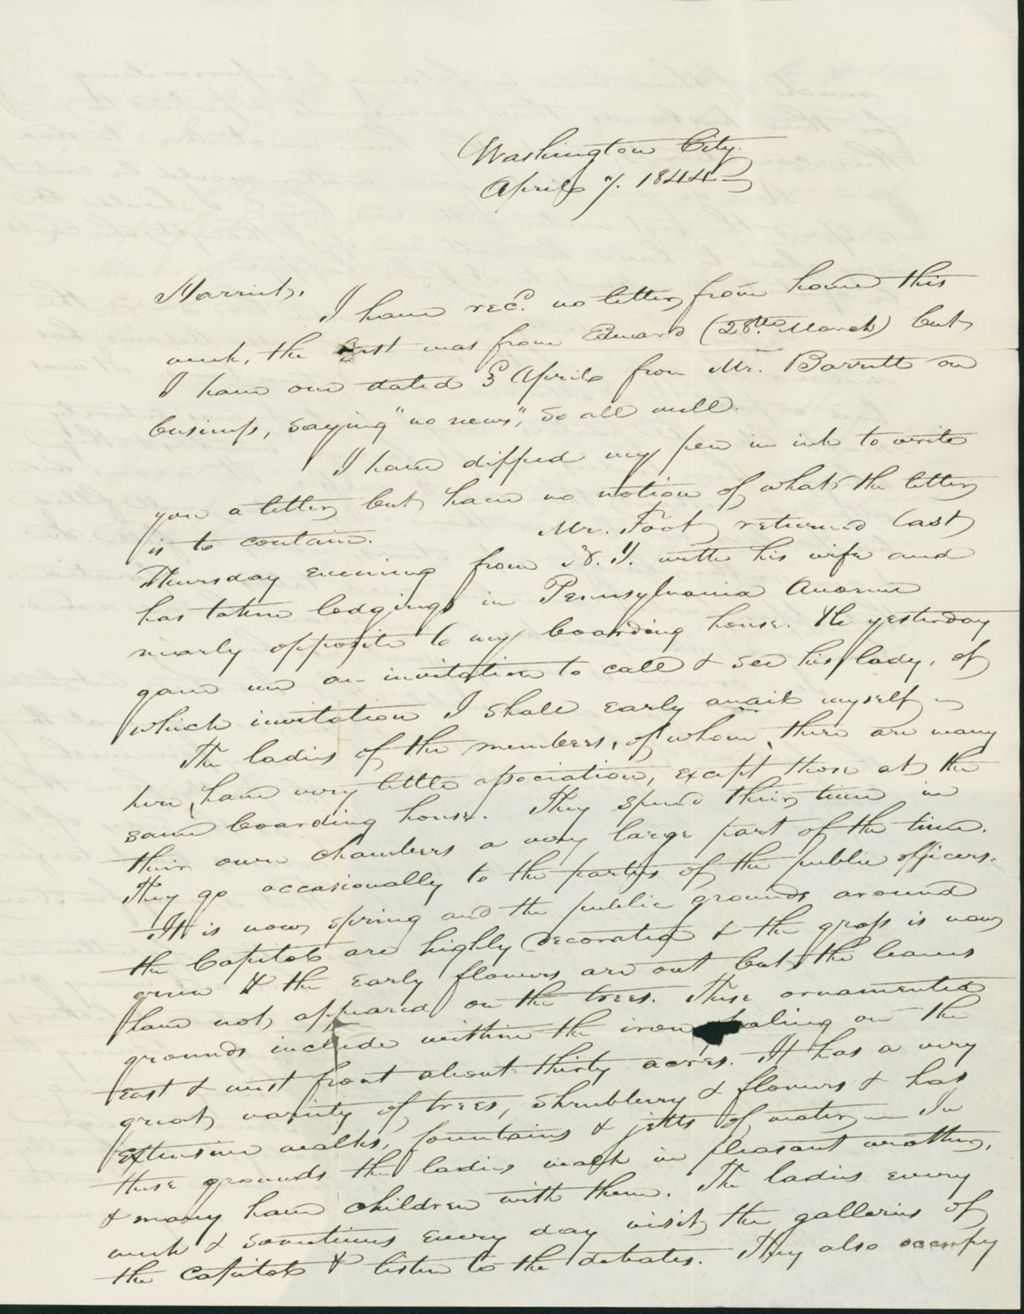 Washington City.
April 7. 1844
Harriet,
I have recd. no letter from home this
week, the last was from Edward (28th March) but
I have one dated 3 April from Mr. Barrett on
business, saying "no news", so all well.
I have dipped my pen in ink to write
you a letter but have no notion of what the letter
is to contain. Mr. Foot returned last
Thursday evening from N. Y. with his wife and
has taken lodgings in Pennsylvania Avenue
nearly opposite to my boarding house. He yesterday
gave me an invitation to call & see his lady, of
which invitation I shall early avail myself
The ladies of the members, of whom there are many
here, have very little association, except those at the
same boarding house. They spend their time in
their own chambers a very large part of the time.
They go occasionally to the parties of the public officers.
It is now spring and the public grounds around
the Capitol are highly decorated & the grass is now
green & the early flowers are out but the leaves
have not appeared on the trees. These ornamented
grounds include within the iron paling on the
east & west front about thirty acres. It has a very
great variety of trees, shrubbery & flowers & has
extensive walks, fountains & jetts of water. In
these grounds the ladies walk in pleasant weather,
& many have children with them. The ladies every
week & sometimes every day visit the galleries of
the capitol & listen to the debates. They also occupy